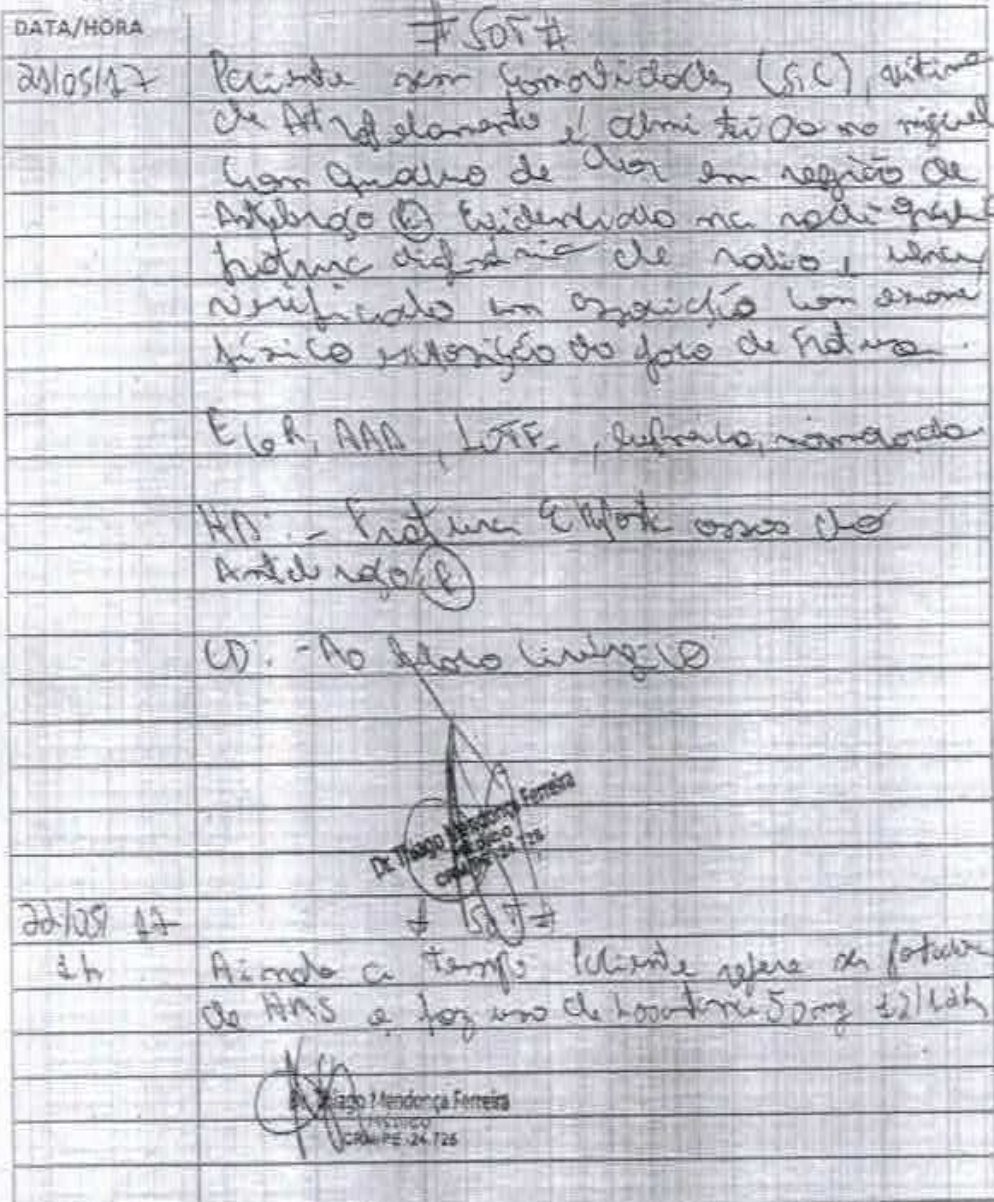 DATA/HORA
# SOT #
21/05/17 Paciente sem comorbidades (SIC), vítima
de Atropelamento é admitido no
com quadro de dor em região de
Antebraço (E) Evidenciado na radiografia
fratura de radio e ulna,
verificado em com exame
físico exposição do foco de fratura.
EGR, AAA, LOTE, eupneico, normocorado
HD: - Fratura Exposta ossos do
Antebraço
CD: - Ao bloco cirúrgico
Dr. Thiago Mendonça Ferreira
MÉDICO
CRM-PE 24.726
22/05/17 # SOT #
1h Ainda a tempo Paciente refere ser
de HAS e faz uso de Losartana 50mg 12/12h
Dr. Thiago Mendonça Ferreira
MÉDICO
CRM-PE 24.726